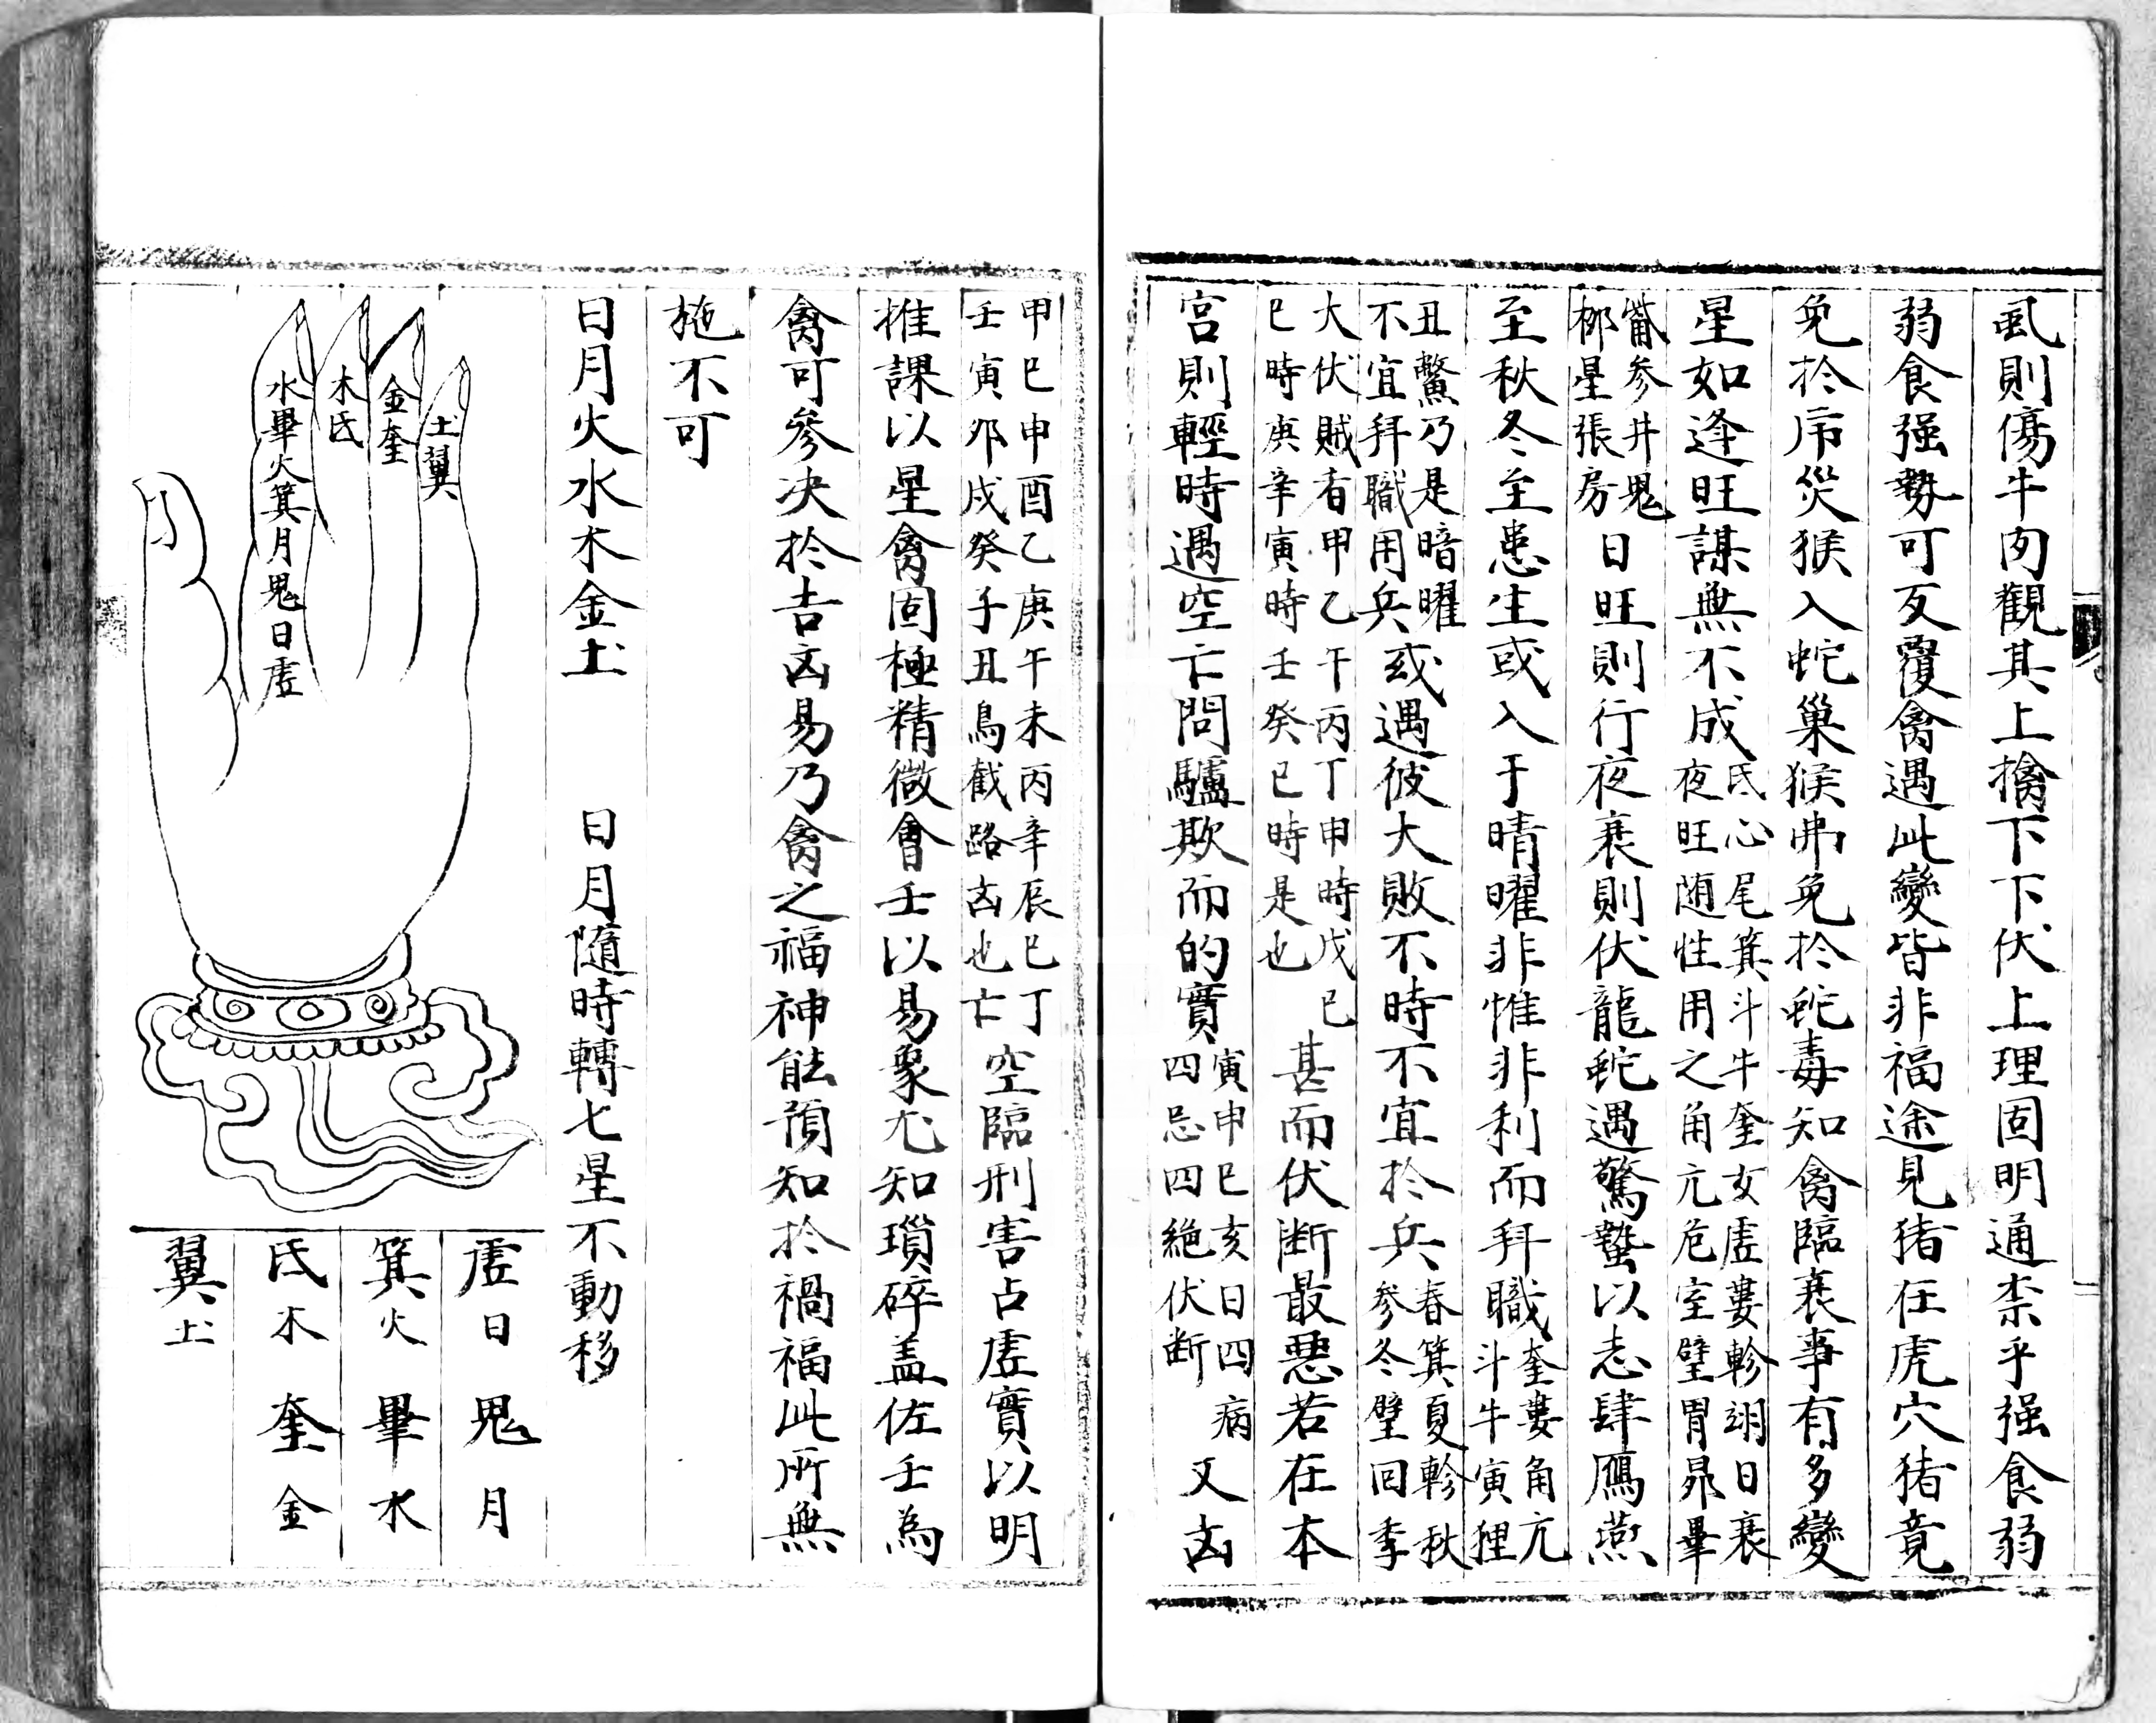 虱則傷牛肉觀其上擒下下伏上理固明通柰乎强食弱
弱食强勢可反覆禽遇此變皆非福途見猪在虎穴猪竟
免於帍災猴入蛇巢猴弗免於蛇毒知禽臨衰事有多變
星如逢旺謀無不成氐心尾箕斗牛奎女虛婁軫翊日衰
夜旺随性用之角亢危室壁胃昴畢
觜参井鬼
栁星張房日旺則行夜衰則伏龍蛇遇驚蟄以志肆鴈燕
至秋冬至患生或入于晴曜非惟非利而拜職奎婁角亢
斗牛寅狸
丑鱉乃是暗曜
不宜拜職用兵或遇彼大敗不時不宜於兵春箕夏軫秋
参冬壁回季
大伏賊者甲乙干丙丁申時戊已
巳時庚辛寅時壬癸已時是也甚而伏断最悪若在本
宫則輕時遇空亡問驢欺而的實寅申巳亥日四病
四忌四絶伏断又凶
甲巳申酉乙庚午未丙辛辰巳丁
壬寅夘戍癸子丑鳥截路凶也亡空臨刑害占虛實以明
推課以星禽固極精微會壬以易象尤知瑣碎盖佐壬為
禽可參决於吉凶易乃禽之福神能預知於禍福此所無
施不可
日月火水木金土 日月隨時轉七星不動移
土翼
金奎
木氐
水畢火箕月鬼日虛
虛日鬼月
箕火畢水
氐木奎金
翼土